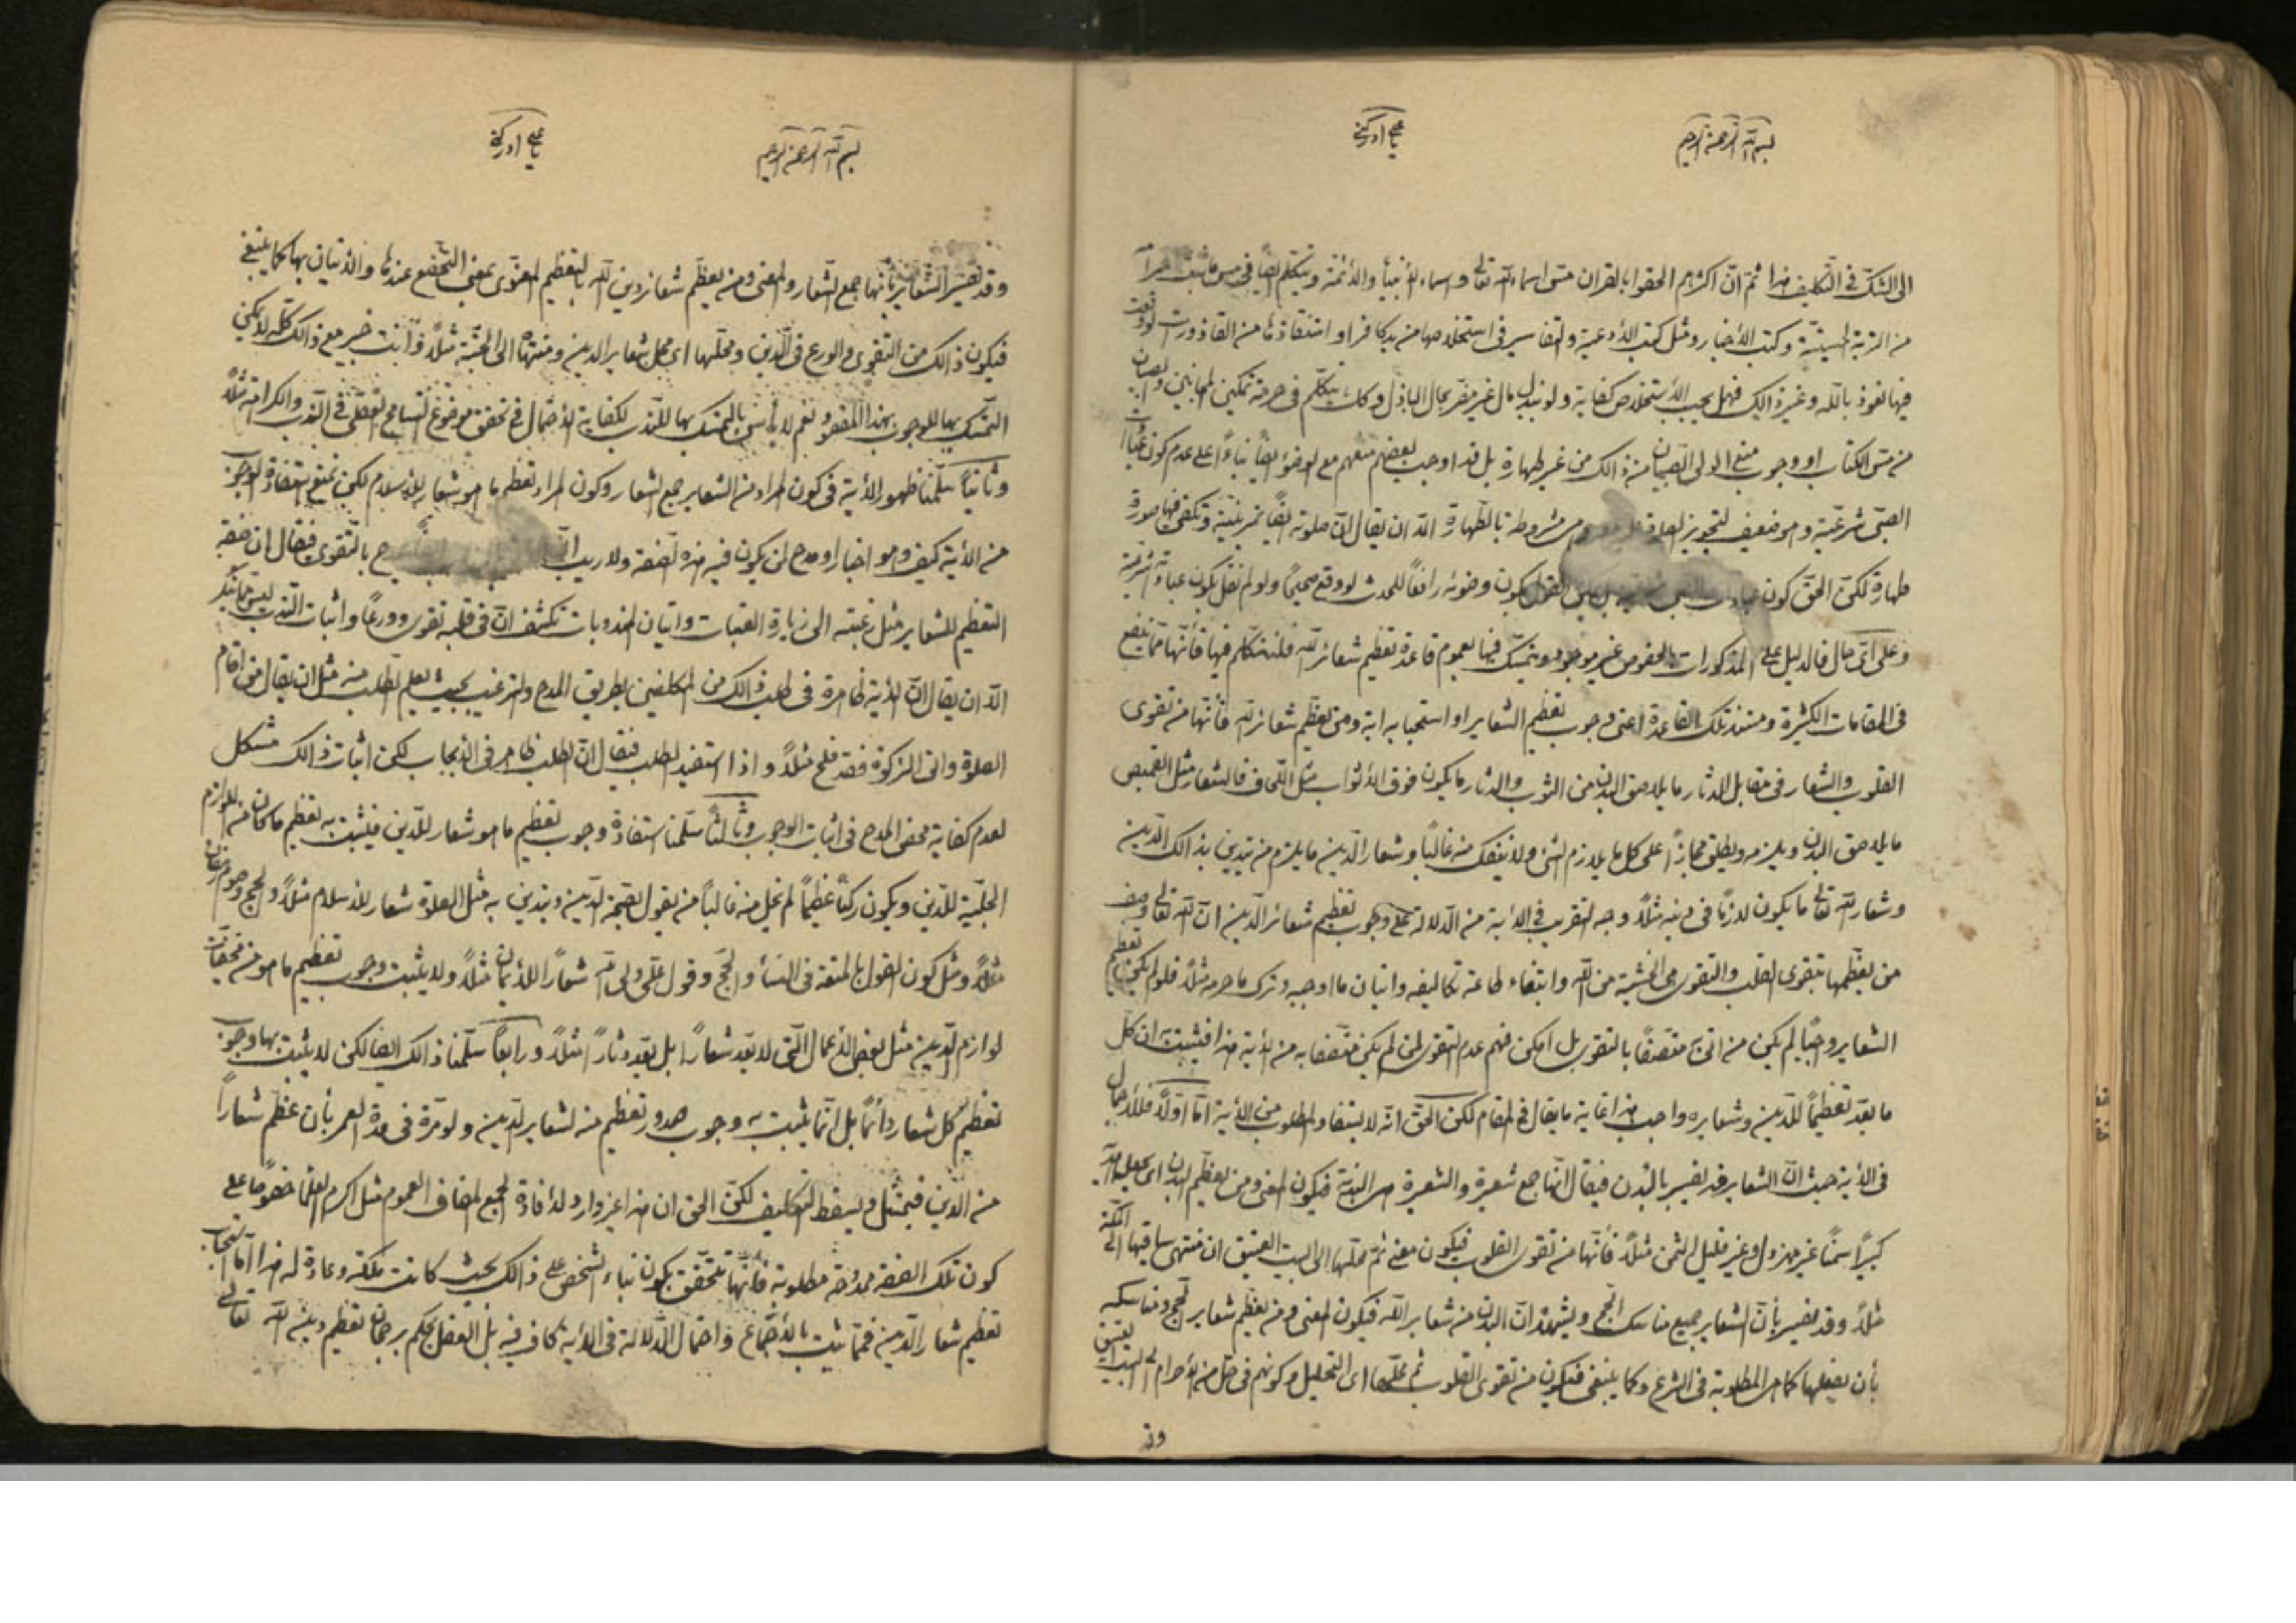 بسم الله الرحمن الرحیم
یا علی ادرکنی
الی الشک فی التکلیف هذا ثم ان اکثرهم الحقوا بالقران مس اسماء الله تعالی و اسماء الأنبیاء والأئمة ویتکلم ایضاً فی مس
من التربة الحسینیة وکتب الأخبار ومثل کتب الأدعیة والتفاسیر فی استخلاصها من ید کافر او استنقاذها من القاذورات لو وقعت
فیها نعوذ بالله وغیر ذالک فهل یجب الأستخلاص کفایة ولو ببذل مال غیر مضر بحال الباذل وکک یتکلم فی حرمة تمکین المجانین والصبیان
من مس الکتاب او وجوب منع الولی الصبیان من ذالک من غیر طهارة بل قد اوجب بعضهم منعهم مع الوضوء ایضاً بناءاً علی عدم کون عبادات
الصبی شرعیة وهو ضعیف لتجویز مشروطة بالطهارة الا ان یقال ان صلوته ایضاً تمرینیة وتکفی فیها صورة
طهارة لکن الحق کون کون وضوئه رافعاً للحدث لو وقع صحیحاً ولو لم نقل بکون عباداته شرعیة
وعلی ای حال فالدلیل علی المذکورات بالخصوص غیر موجود ویتمسک فیها بعموم قاعدة تعظیم شعائر الله فلنتکلم فیها فأنها مما ینفع
فی المقامات الکثیرة ومستند تلک القاعدة اعنی وجوب تعظیم الشعایر او استحبابه ایة ومن یعظم شعائر الله فأنها من تقوی
القلوب والشعار فی مقابل الدثار ما یلاصق البدن من الثوب والدثار ما یکون فوق الأثواب مثل اللحاف فالشعار مثل القمیص
ما یلاصق البدن ویلزمه ویطلق مجازاً علی کل ما یلازم لشئ ولا ینفک منه غالباً وشعار الدین ما یلزم من تدین بذالک الدین
وشعار الله تعالی ما یکون لازماً فی دینه مثلاً وجه التقریب فی الأیة من الدلالة علی وجوب تعظیم شعائر الدین ان الله تعالی وصف
من یعظمها بتقوی القلب والتقوی هی الخشیة من الله وابتغاء طاعته تکالیفه واتیان ما اوجبه وترک ما حرمه مثلاً فلو لم یکن تعظیم
الشعایر واجباً لم یکن من اتی به متصفاً بالتقوی بل امکن فهم عدم التقوی لمن لم یکن متصفا به من الأیة هذا فیثبت ان کل
ما یعد تعظیماً للدین وشعایره واجب هذا غایة ما یقال فی المقام لکن الحق انه لا یستفاد المطلوب من الأیة اما اولاً فللأجمال
فی الأیة حیث ان الشعایر قد یفسر بالبدن فیقال انها جمع شعیرة والشعیرة هی البدنة فیکون المعنی ومن یعظم البدن ای یجعلها
کبیراً سمناً غیر مهزول وغیر قلیل الثمن مثلاً فأنها من تقوی القلوب فیکون معنی ثم محلها الی البیت العتیق ان منتهی سیاقیها الی مکة
مثلاً وقد یفسر بأن الشعایر جمیع مناسک الحج ویشهد ان البدن من شعایر الله فیکون المعنی ومن یعظم شعایر الحج ومناسکه
بأن یفعلها کما هی المطلوبة فی الشرع وکما ینبغی فیکون من تقوی القلوب ثم محلها ای التحلیل وکونهم فی حل من الأحرام الی البیت العتیق
وقد
بسم الله الرحمن الرحیم
یا علی ادرکنی
وقد یفسر الشعایر بأنها جمع الشعار والمعنی ومن یعظم شعائر دین الله بالتعظیم المعنوی بمعنی التخضع عندها والأتیان بها کما ینبغی
فیکون ذالک من التقوی والورع فی الدین ومحلها ای محل شعایر الدین ومنتهاها الی الجنة مثلاً وانت خبیر مع ذالک کله لا یمکن
التمسک بها للوجوب بهذا المقصود نعم لا بأس بالتمسک بها للندب لکفایة الأحتمال فی تحقق موضوع التسامح العقلی فی الندب والکراهة مثلاً
وثانیاً سلمنا ظهور الأیة فی کون المراد من الشعایر جمع الشعار وکون المراد تعظیم ما هو شعار للأسلام لکن نمنع استفادة الوجوب
من الأیة کیف وهو اخبار او مدح لمن یکون فیه هذه الصفة ولا ریب ان بالتقوی فیقال ان صفة
التعظیم للشعایر مثل رغبته الی زیارة العتبات واتیان المندوبات تکشف ان فی قلبه تقوی وورعاً واثبات الندب لیس مما ینکر
الا ان یقال ان الأیة ظاهرة فی طلب ذالک من المکلفین بطریق المدح والترغیب بحیث یعلم الطلب منه مثل ان یقال من اقام
الصلوة واتی الزکوة فقد فلح مثلاً واذا استفید الطلب فیقال ان الطلب ظاهر فی الأیجاب لکن اثبات ذالک مشکل
لعدم کفایة محض المدح فی اثبات الوجوب وثالثاً سلمنا استفادة وجوب تعظیم ما هو شعار للدین فیثبت به تعظیم ما کان من اللوازم
الجلیة للدین ویکون رکناً عظیماً لم یخل منه غالباً من یقول بصحة الدین ویتدین به مثل الصلوة شعار للأسلام مثلاً والحج وصوم رمضان
مثلاً ومثل کون القول بالمتعة فی النسأ والحج وقول علی ولی الله شعاراً للأیمان مثلاً ولا یثبت وجوب تعظیم ما هو من مخفیات
لوازم الدین مثل بعض الأعمال التی لا یعد شعاراً بل یعد دثاراً مثلاً ورابعاً سلمنا ذالک ایضا لکن لا یثبت بها وجوب
تعظیم کل شعار دائماً بل انما یثبت به وجوب صدور تعظیم منه لشعایر الدین ولو مرة فی مدة العمر بأن عظم شعاراً
من الدین فیمتثل ویسقط التکلیف لکن الحق ان هذا غیر وارد لأفادة الجمع المضاف العموم مثل اکرم العلماء خصوصاً علی
کون تلک الصفة ممدوحة مطلوبة فأنها تتحقق بکون بناء الشخص علی ذالک بحیث کانت ملکة وعادة له هذا اما استحباب
تعظیم شعار الدین فمما ثبت بالأجماع واحتمال الدلالة فی الأیة کاف فیه بل العقل یحکم برجحان تعظیم دین الله تعالی